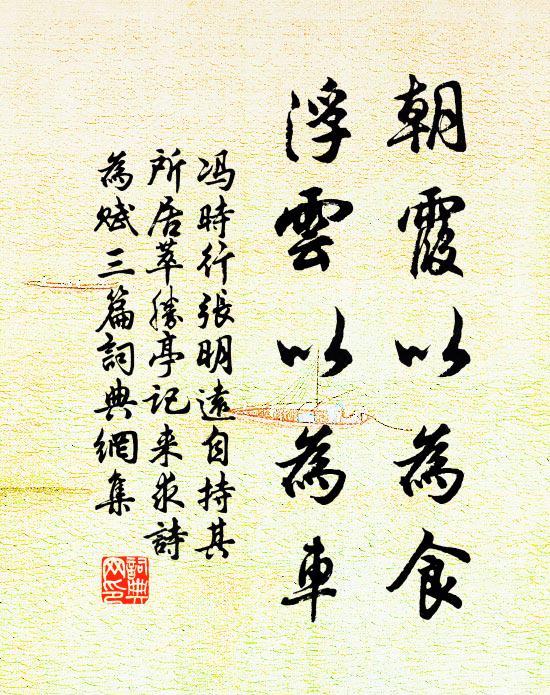 朝霞以為食
浮雲以為車
冯時行張明遠自持其
所居萃勝亭記来求詩
為赋三篇詞典網集
詞典
网印